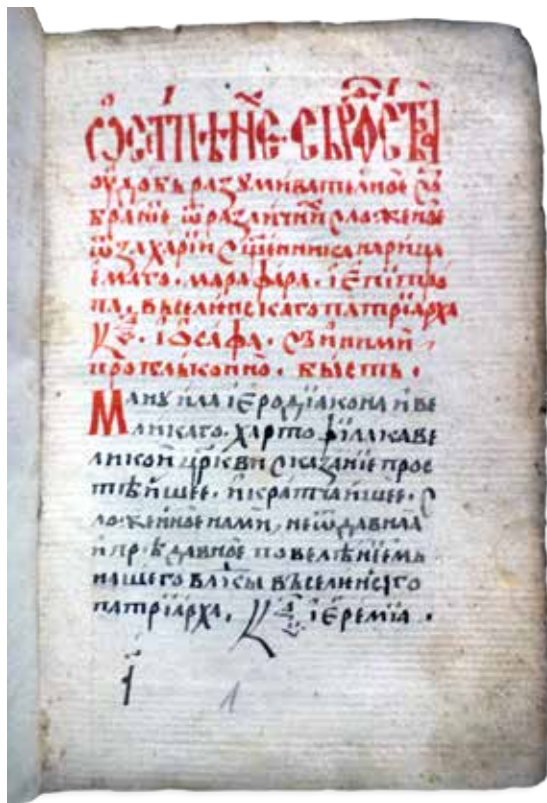 Ѡ степене сирѡдства
оудобь разумивателное сьо
браніе ѿ различнїи сложеное
ѿ захарїи сщ҃енника нарица
емаго. марафара. і епїтро
па, въселенскаго патрїарха
кѵ҃. іѡасафа. съ и҆ними
протлькованно. бысть.
Мануила іеродїакона и ве
ликаго. хартофїлака ве
ликои цр҃кви сказанїе прос
тѣишее. и кратчаишее. с
ложенное нами, не ѿдавна а
и прѣдавное повелѣнїемь
нашего влⷣкы въселенс҇го
патрїарха. Кѵ҃ іеремїа.
1